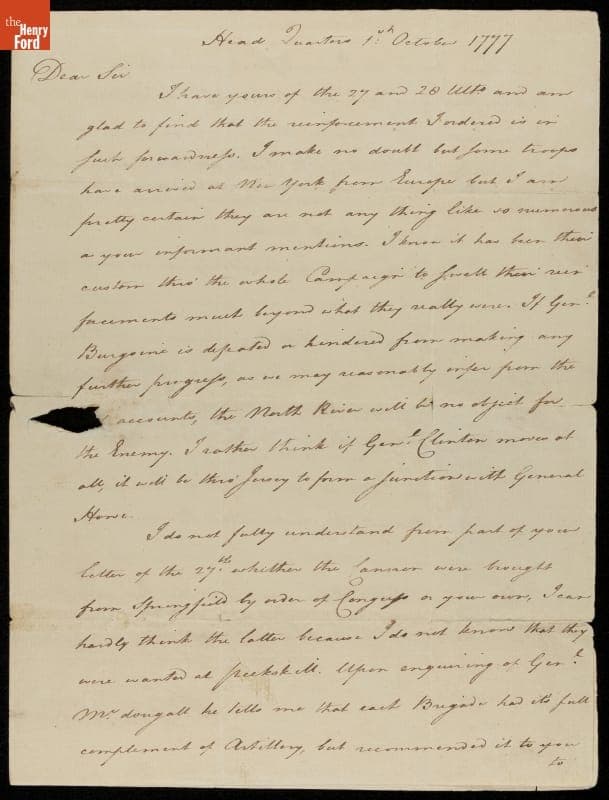 the
Henry
Ford
Head Quarters 1st October 1777
Dear Sir
I have yours of the 27 and 28 Ulto and am
glad to find that the reinforcement I ordered is in
such forwardness. I make no doubt but some troops
have arrived at New York from Europe but I am
pretty certain they are not any thing like so numerous
as your informant mentions. I know it has been their
custom thro the whole Campaign to swell their rein
forcements much beyond what they really were. If Genl
Burgoine is defeated or hindered from making any
further progress, as we may reasonably infer from the
accounts, the North River will be no object for
the Enemy. I rather think if Genl Clinton moves at
all, it will be thro Jersey to form a junction with General
Howe.
I do not fully understand from part of your
letter of the 27th whether the Cannon were brought
from Springfield by order of Congress or your own, I can
hardly think the latter because I do not know that they
were wanted at peekskill. Upon enquiring of Genl
Mc dougall he tells me that each Brigade had its full
complement of Artillery, but recommended it to you
to